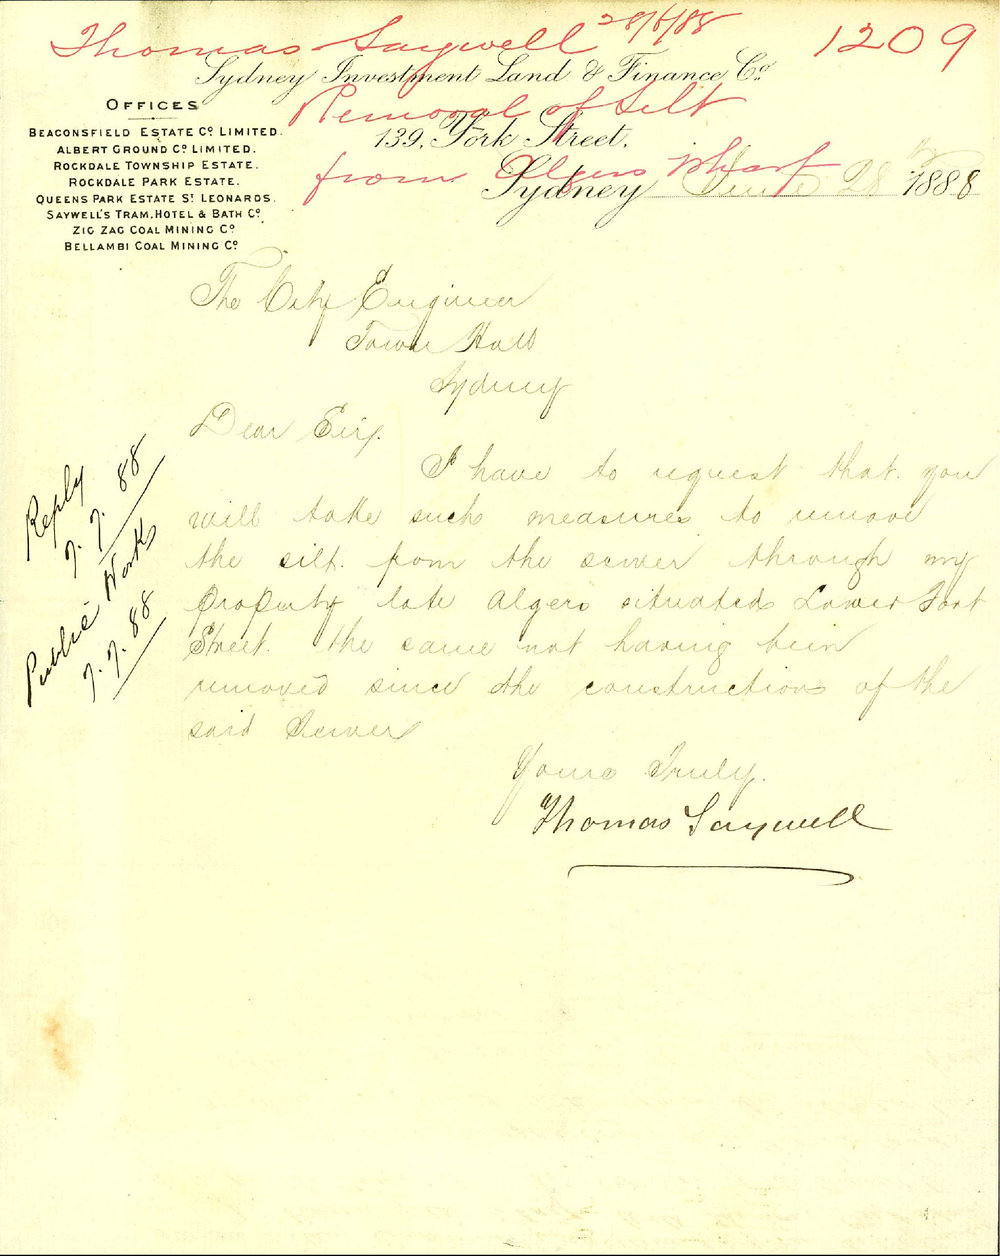 Thomas Saywell 28/6/88 1209
Sydney Investment Land & Finance Co.
Removal of Silt
139, York Street.
from Algers Wharf
Sydney June 28th 1888
OFFICES
BEACONSFIELD ESTATE Co LIMITED.
ALBERT GROUND Co LIMITED.
ROCKDALE TOWNSHIP ESTATE.
ROCKDALE PARK ESTATE.
QUEENS PARK ESTATE St LEONARDS.
SAYWELL'S TRAM, HOTEL & BATH Co
ZIG ZAG COAL MINING Co
BELLAMBI COAL MINING Co
The City Engineer
Town Hall
Sydney
Dear Sir,
I have to request that you
will take such measures to remove
the silt from the sewer through my
property late Algers situated Lower Fort
Street. the same not having been
removed since the construction of the
said Sewer
Yours Truly.
Thomas Saywell
Reply
7.7.88
Public Works
7.7.88